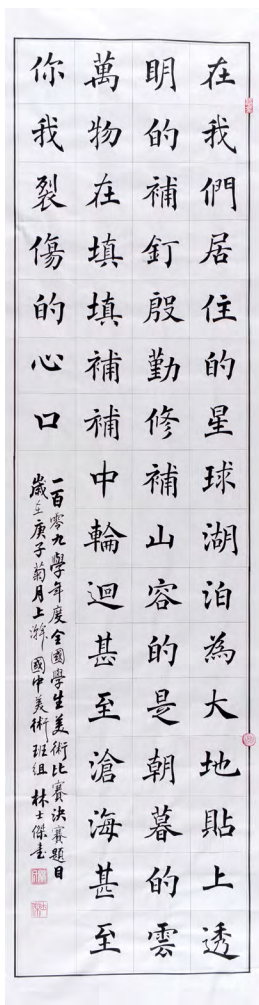 在我們居住的星球湖泊為大地貼上透
明的補釘殷勤修補山容的是朝暮的雲
萬物在填填補補中輪迴甚至滄海甚至
你我裂傷的心口
一百零九學年度全國學生美術比賽決賽題目
歲在庚子菊月上澣國中美術班組林士傑書